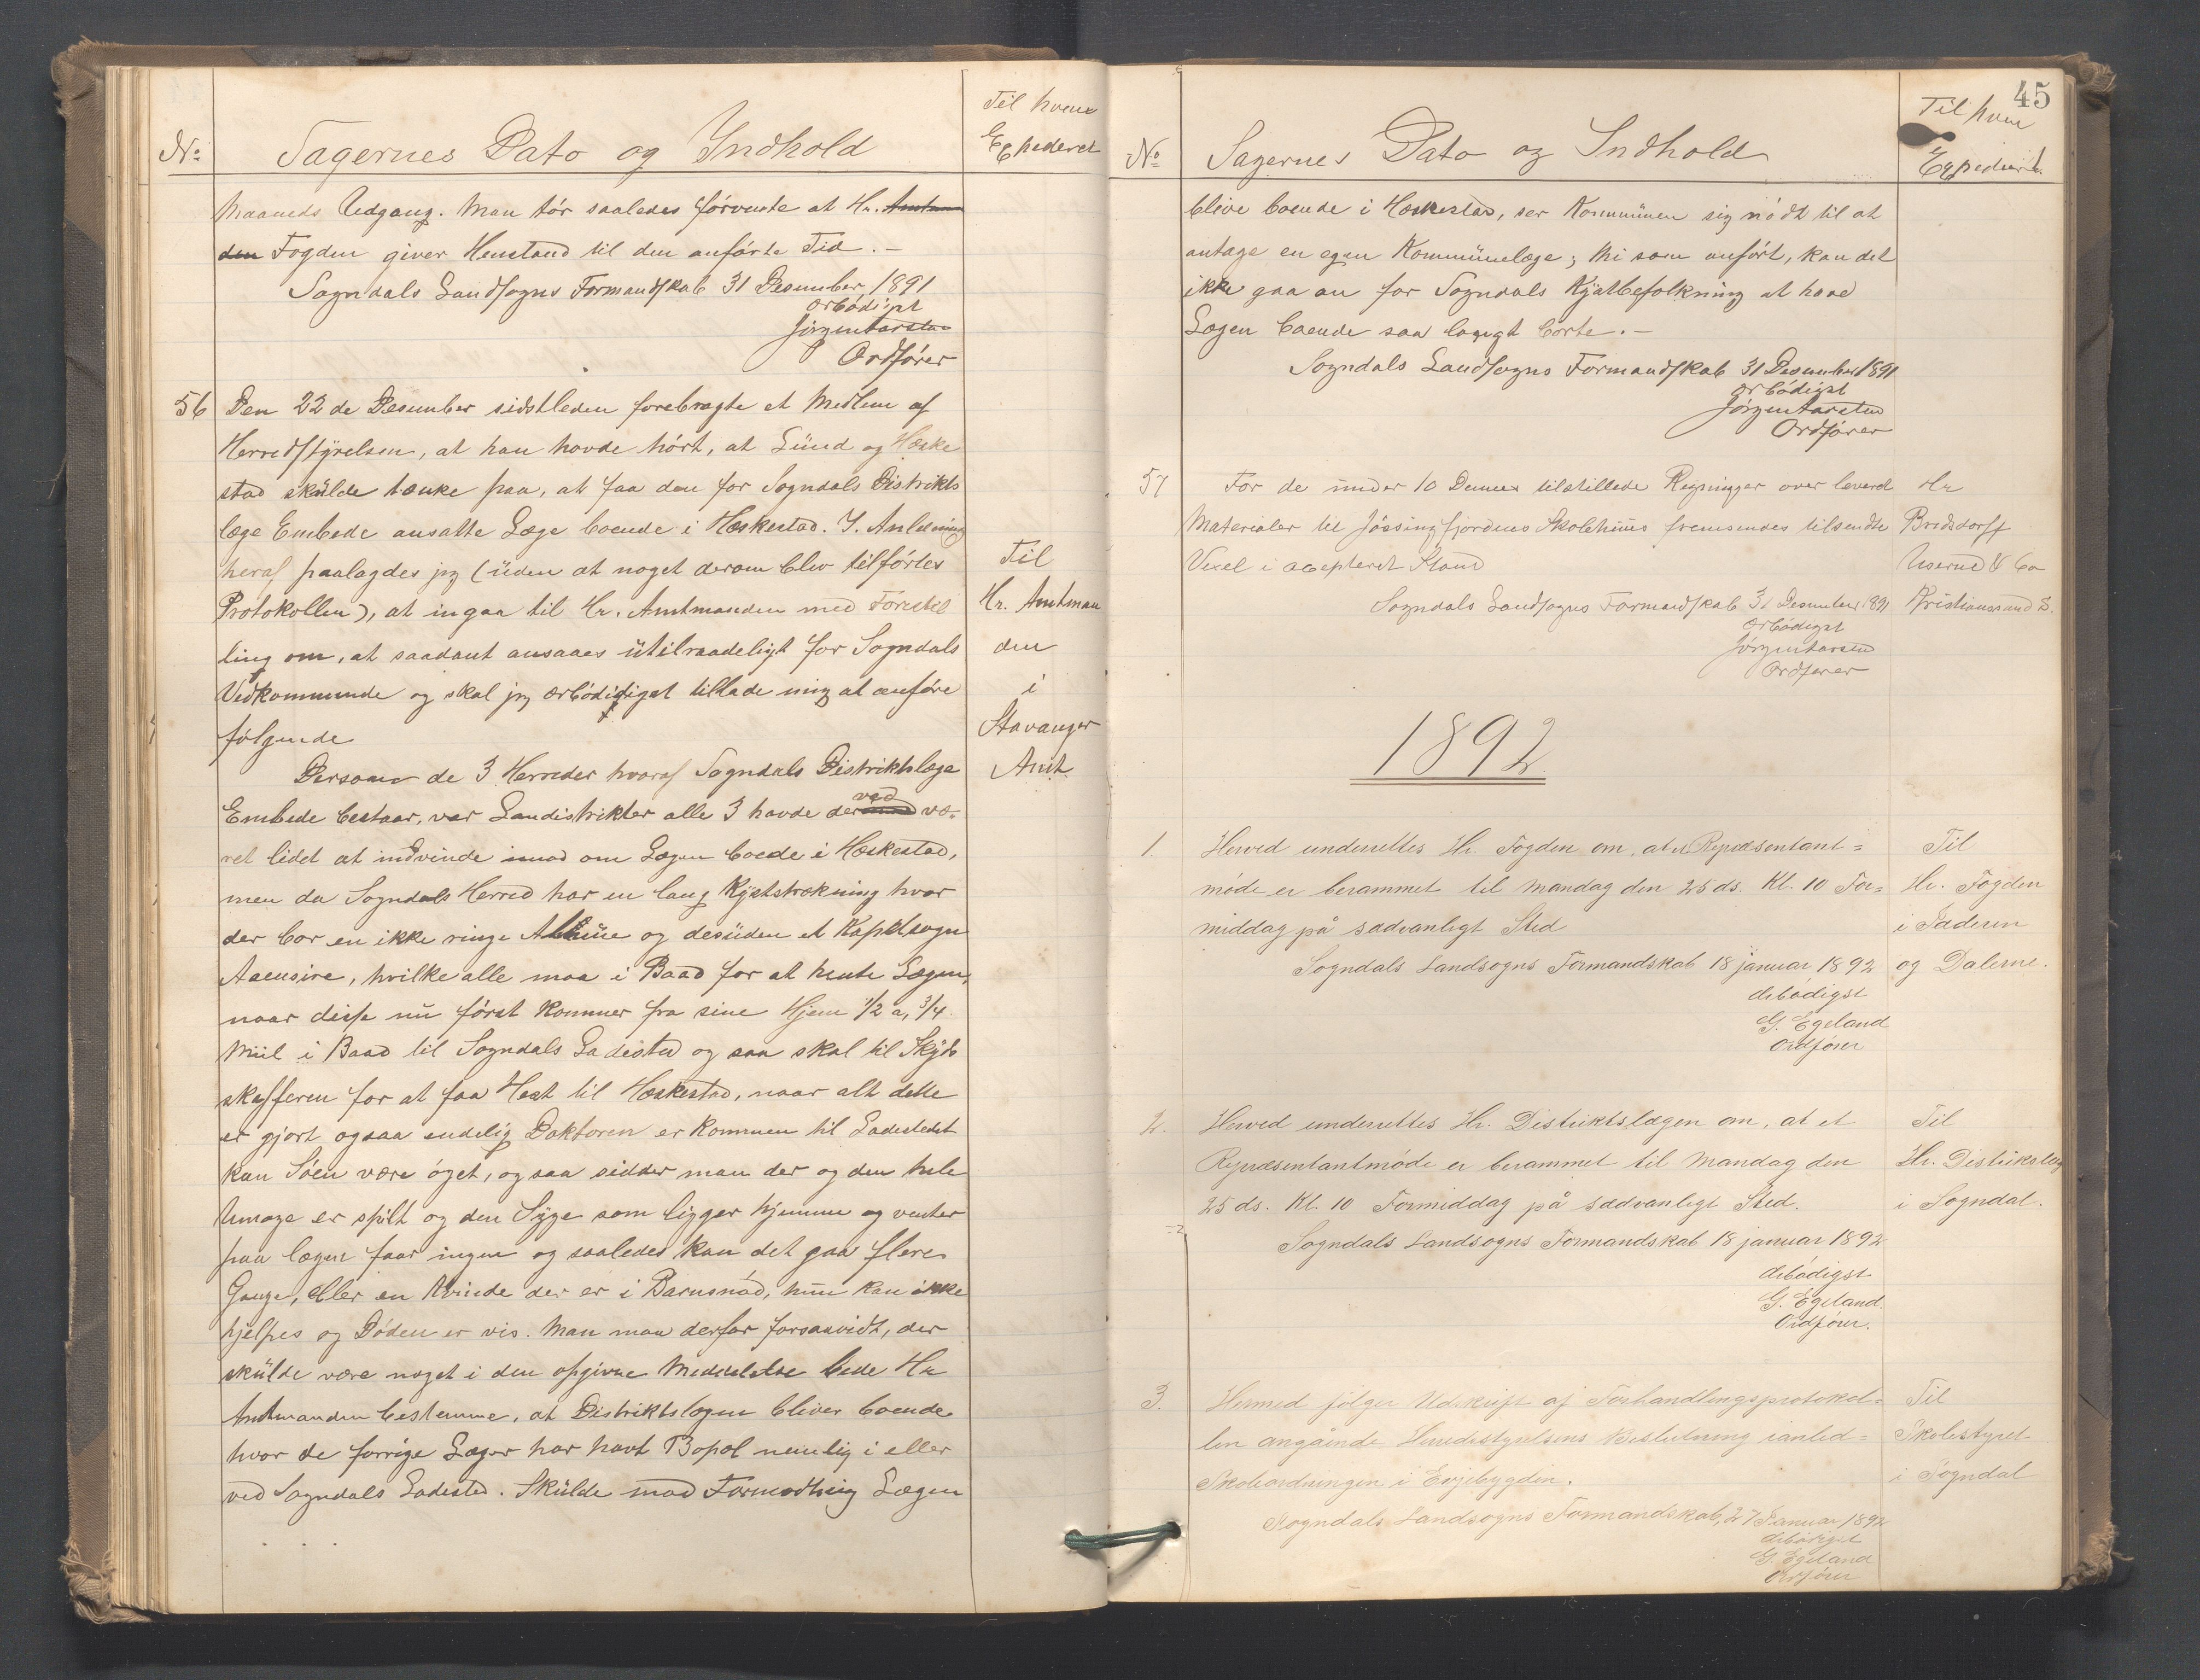 No Sagernes Dato og Indhold
Til hvem
Expederet
Maaneds Udgang. Man tör saaledes förvente at Hr. Amtm
den Fogden giver Henstand til den anförte Tid.-
Sogndals Landsogns Formandskab 31 Desember 1891
Ærbödigst
Jörgen Aarstad
Ordförer
56 Den 22de Desember sidstleden forebragte et Medlem af
Herredstyrelsen, at han havde hört, at Lund og Heske
stad skulde tænke paa, at faa den for Sogndals Distrikts
læge Embede ansatte Læge boende i Heskestad. I. Anledning
heraf paalagdes jeg (uden at noget derom blev tilförtes
Protokollen), at ingaa til Hr. Amtmanden med Forestel
ling om, at saadant ansaaes utilraadeligt for Sogndals
Vedkommende og skal jeg ærbödigst tillade mig at anföre
fölgende
Til
Hr. Amtman
den
i
Stavanger
Amt
Dersom de 3 Herreder hvoraf Sogndals Distriktslæge
Embede bestaar, var Landistrikter alle 3 havde der ved væ-
ret lidet at indvinde imod om Lægen boede i Heskestad,
men da Sogndals Herred har en lang Kyststrækning hvor
der bor en ikke ringe Almue og desuden et Kapelsogn
Aaensire, hvilke alle maa i Baad for at hente Lægen,
naar disse nu först kommer fra sine Hjem 1/2 a, 3/4
Miil i Baad til Sogndals Ladested og saa skal til Skyds
skafferen for at faa Hest til Heskestad, naar alt dette
er gjort ogsaa endelig Doktoren er kommen til Ladestedet
kan Söen være öget, og saa sidder man der og den hele
Umage er spilt og den Syge som ligger hjemme og venter
paa lægen faar ingen og saaledes kan det gaa flere
Gange, eller en Kvinde der er i Barnsnöd, hun kan ikke
hjelpes og Döden er vis. Man maa derfor forsaavidt, der
skulde være noget i den opgivne Meddelelse bede Hr
Amtmanden bestemme, at Distriktslægen bliver boende
hvor de forrige Læger har havt Bopæl nemlig i eller
ved Sogndals Ladested. Skulde mod Formodning Lægen
45
No Sagernes Dato og Indhold
Til hvem
Expederet
blive boende i Heskestad, ser Kommunen sig nödt til at
antage en egen Kommunelæge; thi som anfört, kan det
ikke gaa an for Sogndals Kystbefolkning at have
Lægen boende saa langt borte.-
Sogndals Landsogns Formandskab 31 Desember 1891
Ærbödigst
Jörgen Aarstad
Ordförer
57 For de under 10 Dennes tilstillede Regninger over leveret
Materialer til Jössingfjordens Skolehuus fremsendes tilsendte
Vexel i acepteret Stand
Sogndals Landsogns Formandskab 31 Desember 1891
Ærbödigst
Jörgen Aarstad
Ordförer
Hr
Bredsdorff
& Co
Kristianssand S.
1892
1. Herved underrettes Hr. Fogden om, at et Repræsentant=
möde er berammet til Mandag den 25 ds. Kl. 10 For=
middag på sædvanligt Sted
Sogndals Landsogns Formandskab 18 januar 1892
Ærbödigst
G. Egeland
Ordförer
Til
Hr. Fogden
i Jæderen
og Dalerne.
2. Herved underrettes Hr. Distriktslægen om, at et
Repræsentantmöde er berammet til Mandag den
25 ds. Kl. 10 Formiddag på sædvanligt Sted.
Sogndals Landsogns Formandskab 18 januar 1892
Ærbödigst
G. Egeland.
Ordförer.
Til
Hr. Distriktslæg
i Sogndal.
3. Hermed fölger Udskrift af Forhandlingsprotokol=
len angående Herredsstyrelsens Beslutning ianled=
Skoleordningen i Evjebygden.
Sogndals Landsogns Formandskab, 27 Januar 1892
Ærbödigst
G. Egeland
Ordförer
Til
Skolestyret
i Sogndal